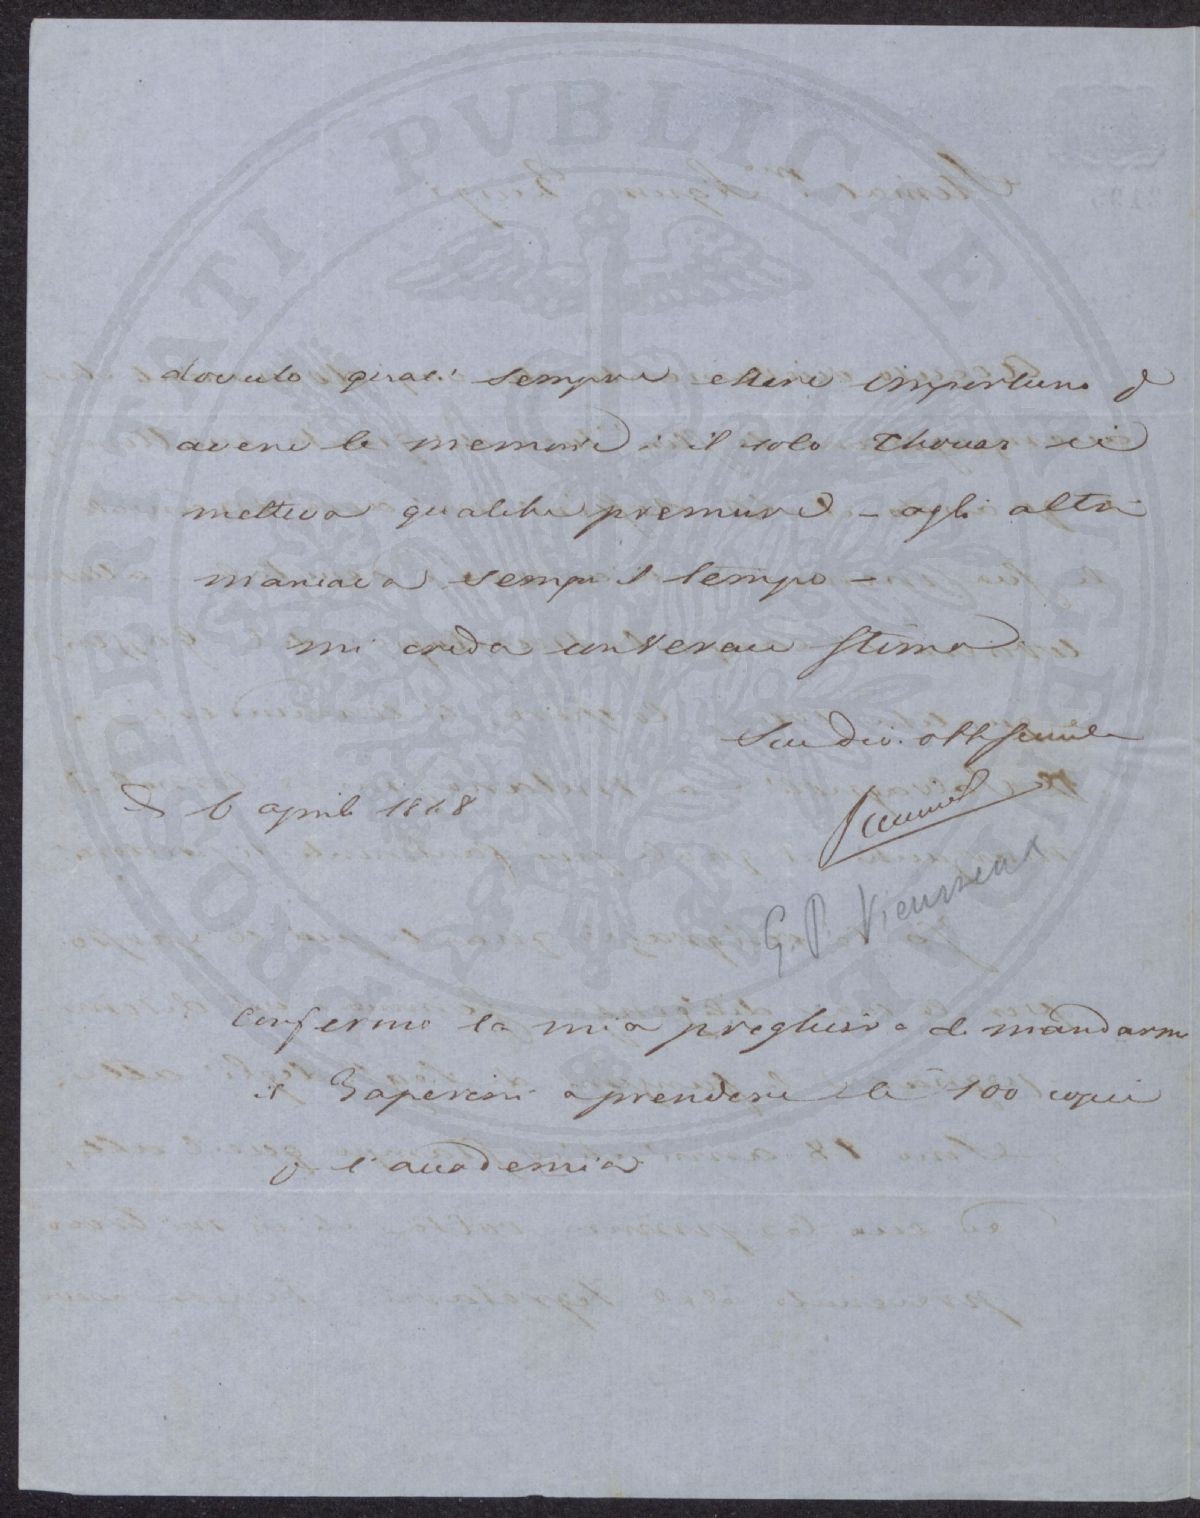 PROSPERITATI PVBLICAE AVGENDAE
dovuto quasi sempre essere importuno p
avere le memorie; il solo Thouar ci
metteva qualche premura – agli altri
mancava sempre il tempo –
mi creda con verace stima
Suo dev. obb servite
6 aprile 1848
Vieusseux
G. P. Vieusseux
Confermo la mia preghiera di mandarmi
il Baperini a prendere le 100 copie
p l'accademia